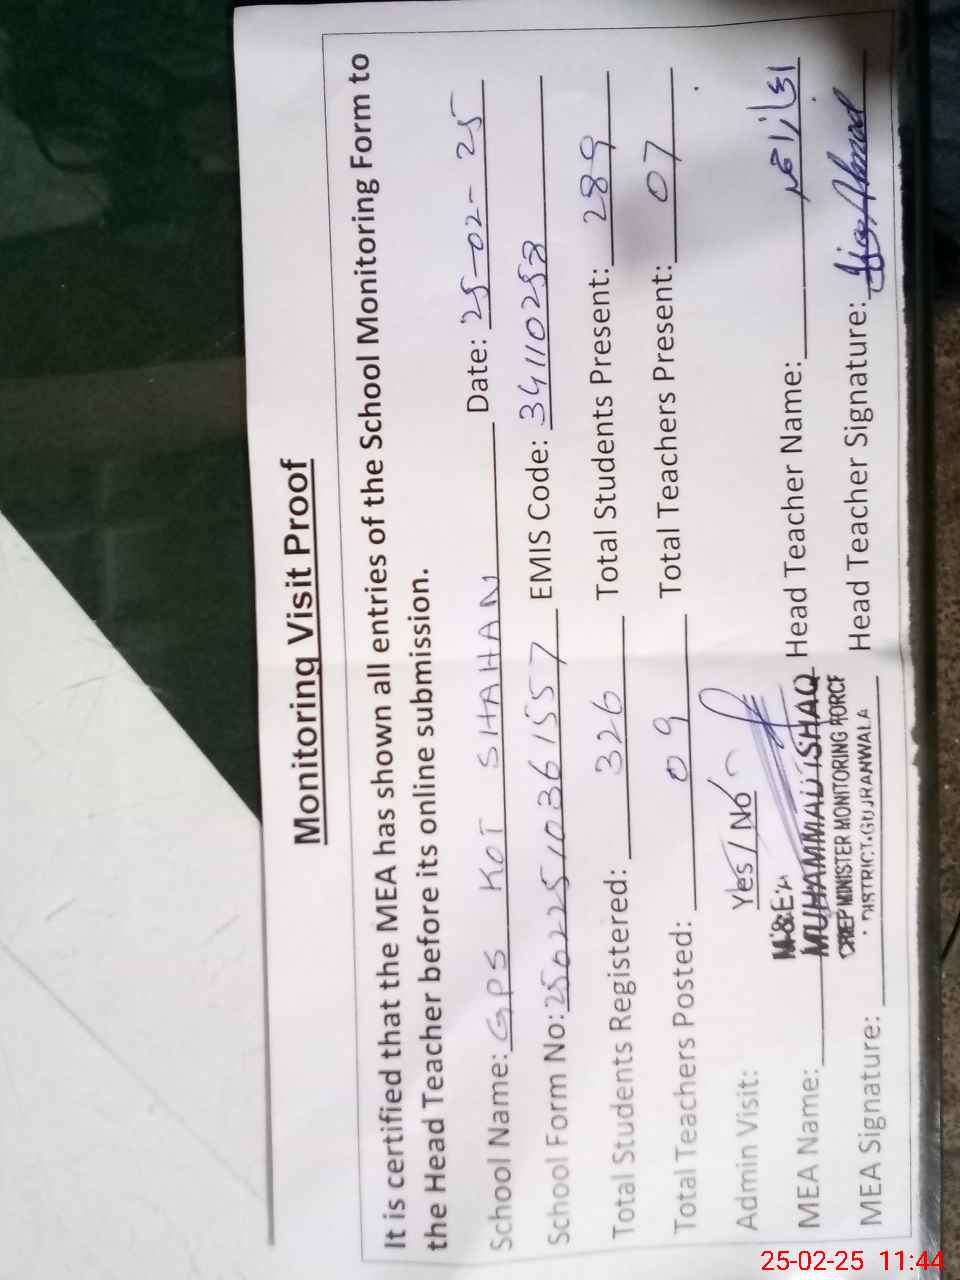 Monitoring Visit Proof
It is certified that the MEA has shown all entries of the School Monitoring Form to
the Head Teacher before its online submission.
School Name: GPS KOT SHAHAN Date: 25-02-25
School Form No: 25022510361557 EMIS Code: 34110253
Total Students Registered: 326 Total Students Present: 289
Total Teachers Posted: 09 Total Teachers Present: 07
Admin Visit: Yes / No
M&EA
MEA Name: MUHAMMAD ISHAQ Head Teacher Name: اعجاز احمد
CHIEF MINISTER MONITORING FORCE
DISTRICT.GUJRANWALA
MEA Signature: Head Teacher Signature: Ijaz Ahmad
25-02-25 11:44